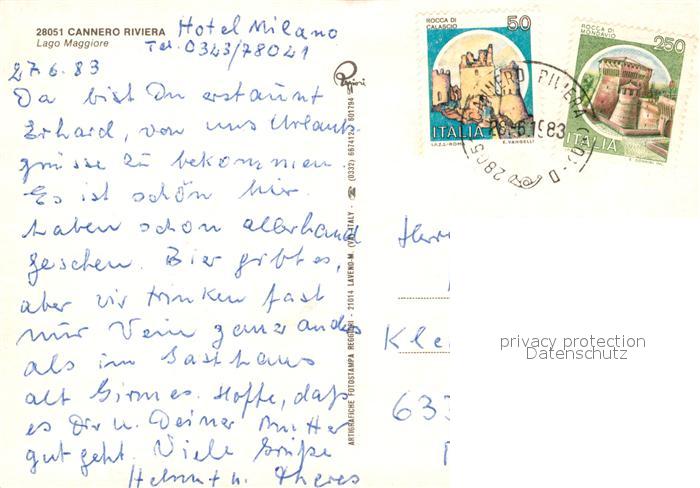 28051 CANNERO RIVIERA
Lago Maggiore
Hotel Milano
Tel. 0323/78021
27.6.83
Da bist Du erstaunt
Erhard, von uns Urlaubs-
grüsse zu bekommen.
Es ist schön hier.
haben schon allerhand
gesehen. Bier gibt es,
aber wir trinken fast
nur Wein ganz anders
als im Gasthaus
alt Girmes. Hoffe, daß
es Dir u. Deiner Mutter
gut geht. Viele Grüße
Helmut u. Theres
ARTIGRAFICHE FOTOSTAMPA REGGIORI - 21014 LAVENO-M. (VA) ITALY - ☎ (0332) 667412 - 601794
ROCCA DI
CALASCIO
50
ITALIA
I.P.Z.S.-ROMA
E. VANGELLI
ROCCA DI
MONDAVIO
250
ITALIA
CANNERO RIVIERA
6.1983
Herr
Kle
633
privacy protection
Datenschutz